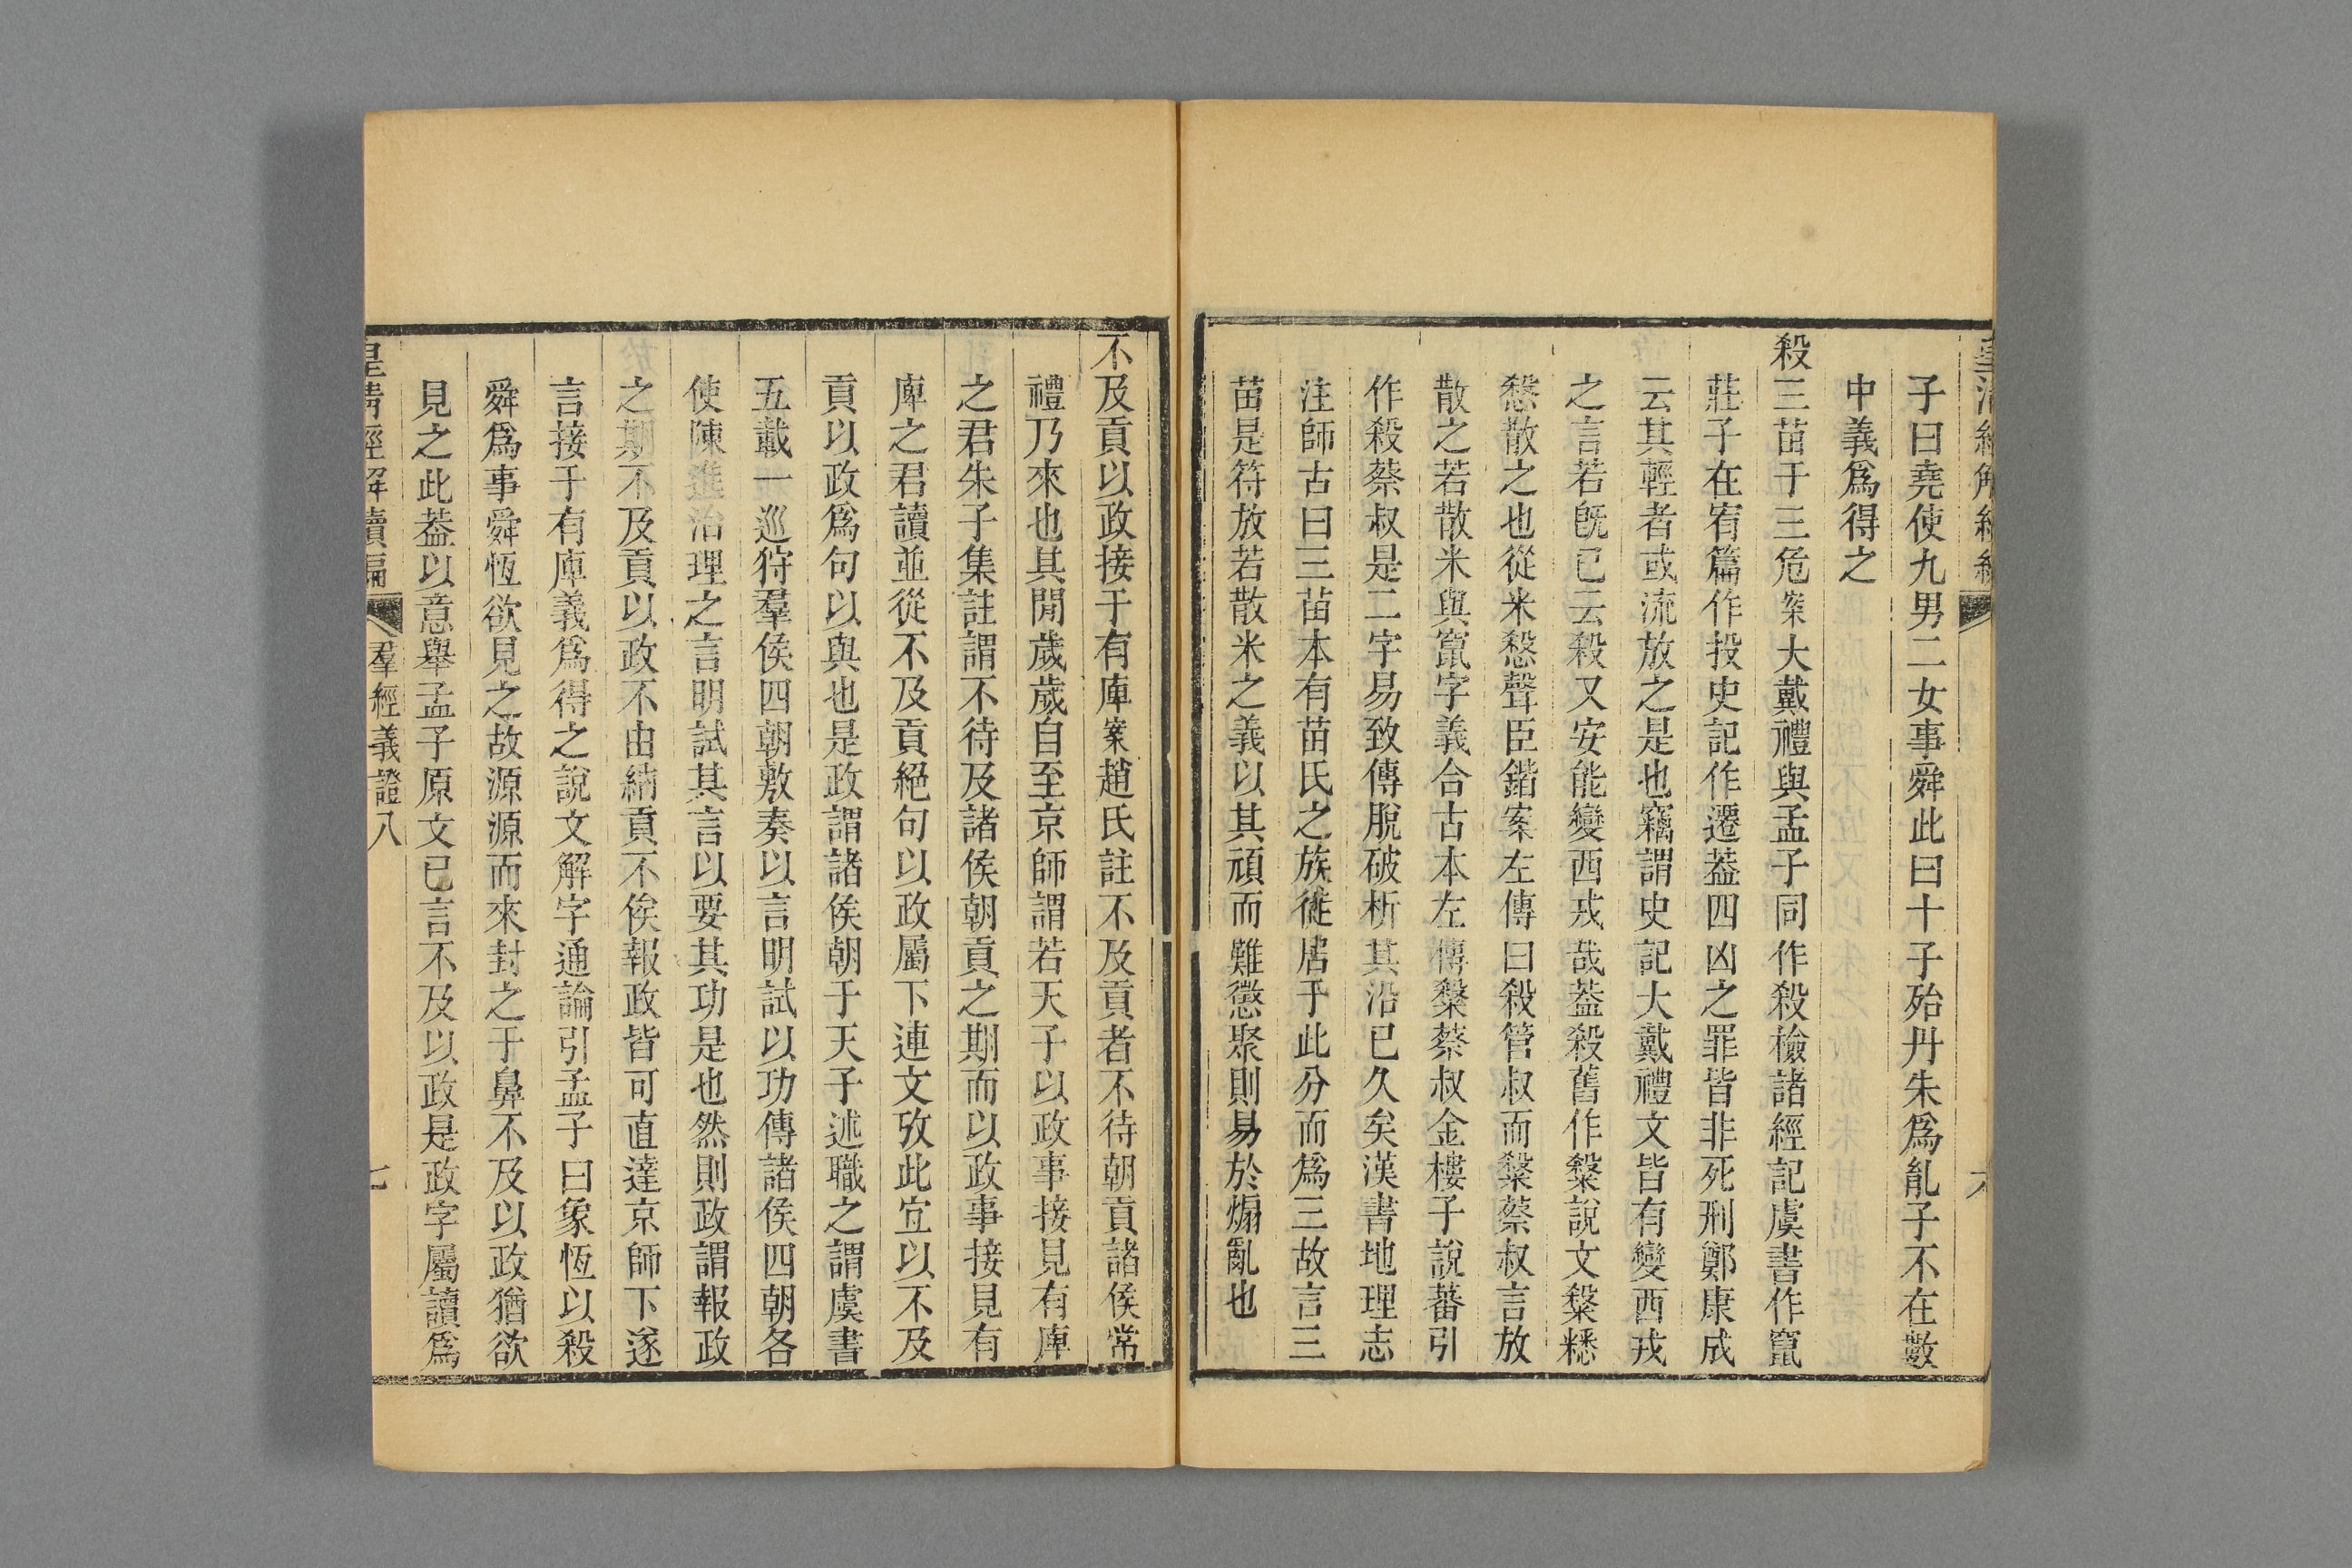 子曰堯使九男二女事舜此曰十子殆丹朱爲亂子不在數
中義爲得之
殺三苗于三危案大戴禮與孟子同作殺檢諸經記虞書作竄
莊子在宥篇作投史記作遷葢四凶之罪皆非死刑鄭康成
云其輕者或流放之是也竊謂史記大戴禮文皆有變西戎
之言若旣已云殺又安能變西戎哉葢殺舊作䊝說文䊝𥻦
散之也從米殺聲臣鍇案左傳曰殺管叔而䊝蔡叔言放
散之若散米與竄字義合古本左傳䊝蔡叔金樓子說蕃引
作殺蔡叔是二字易致傳脫破析其沿已久矣漢書地理志
注師古曰三苗本有苗氏之族徙居于此分而爲三故言三
苗是符放若散米之義以其頑而難懲聚則易於煽亂也
不及貢以政接于有庳案趙氏註不及貢者不待朝貢諸侯常
禮乃來也其閒歲歲自至京師謂若天子以政事接見有庳
之君朱子集註謂不待及諸侯朝貢之期而以政事接見有
庳之君讀並從不及貢絕句以政屬下連文攷此宜以不及
貢以政爲句以與也是政謂諸侯朝于天子述職之謂虞書
五載一巡狩羣侯四朝敷奏以言明試以功傳諸侯四朝各
使陳進治理之言明試其言以要其功是也然則政謂報政
之期不及貢以政不由納貢不俟報政皆可直達京師下遂
言接于有庳義爲得之說文解字通論引孟子曰象恆以殺
舜爲事舜恆欲見之故源源而來封之于鼻不及以政猶欲
見之此葢以意舉孟子原文已言不及以政是政字屬讀爲
皇清經解續編
羣經義證八
七